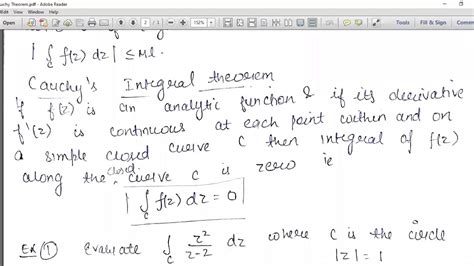 auchy Theorem.pdf - Adobe Reader
2 / 3 152% Tools Fill & Sign Comment
| ∫_C f(z) dz | ≤ Ml.
Cauchy's Integral theorem
If f(z) is an analytic function & if its derivative
f'(z) is continuous at each point within and on
a simple closed curve C then integral of f(z)
along the closed curve C is zero ie
| ∮_C f(z) dz = 0 |
EX ① Evaluate ∮_C z²/z-2 dz where C is the circle
|z| = 1